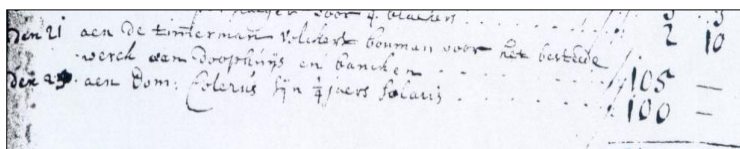 voor 4 blakers . . . . . 3 3
den 21 aen de timerman Volckert bouman voor het besteede 2 10
werck aen Doophuijs en bancken . . . . . 105 —
den 25 aen Dom: Colerus sijn 1/4 jaers Solaris . . . . . 100 —